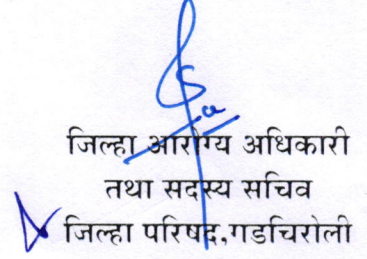 जिल्हा आरोग्य अधिकारी
तथा सदस्य सचिव
जिल्हा परिषद,गडचिरोली